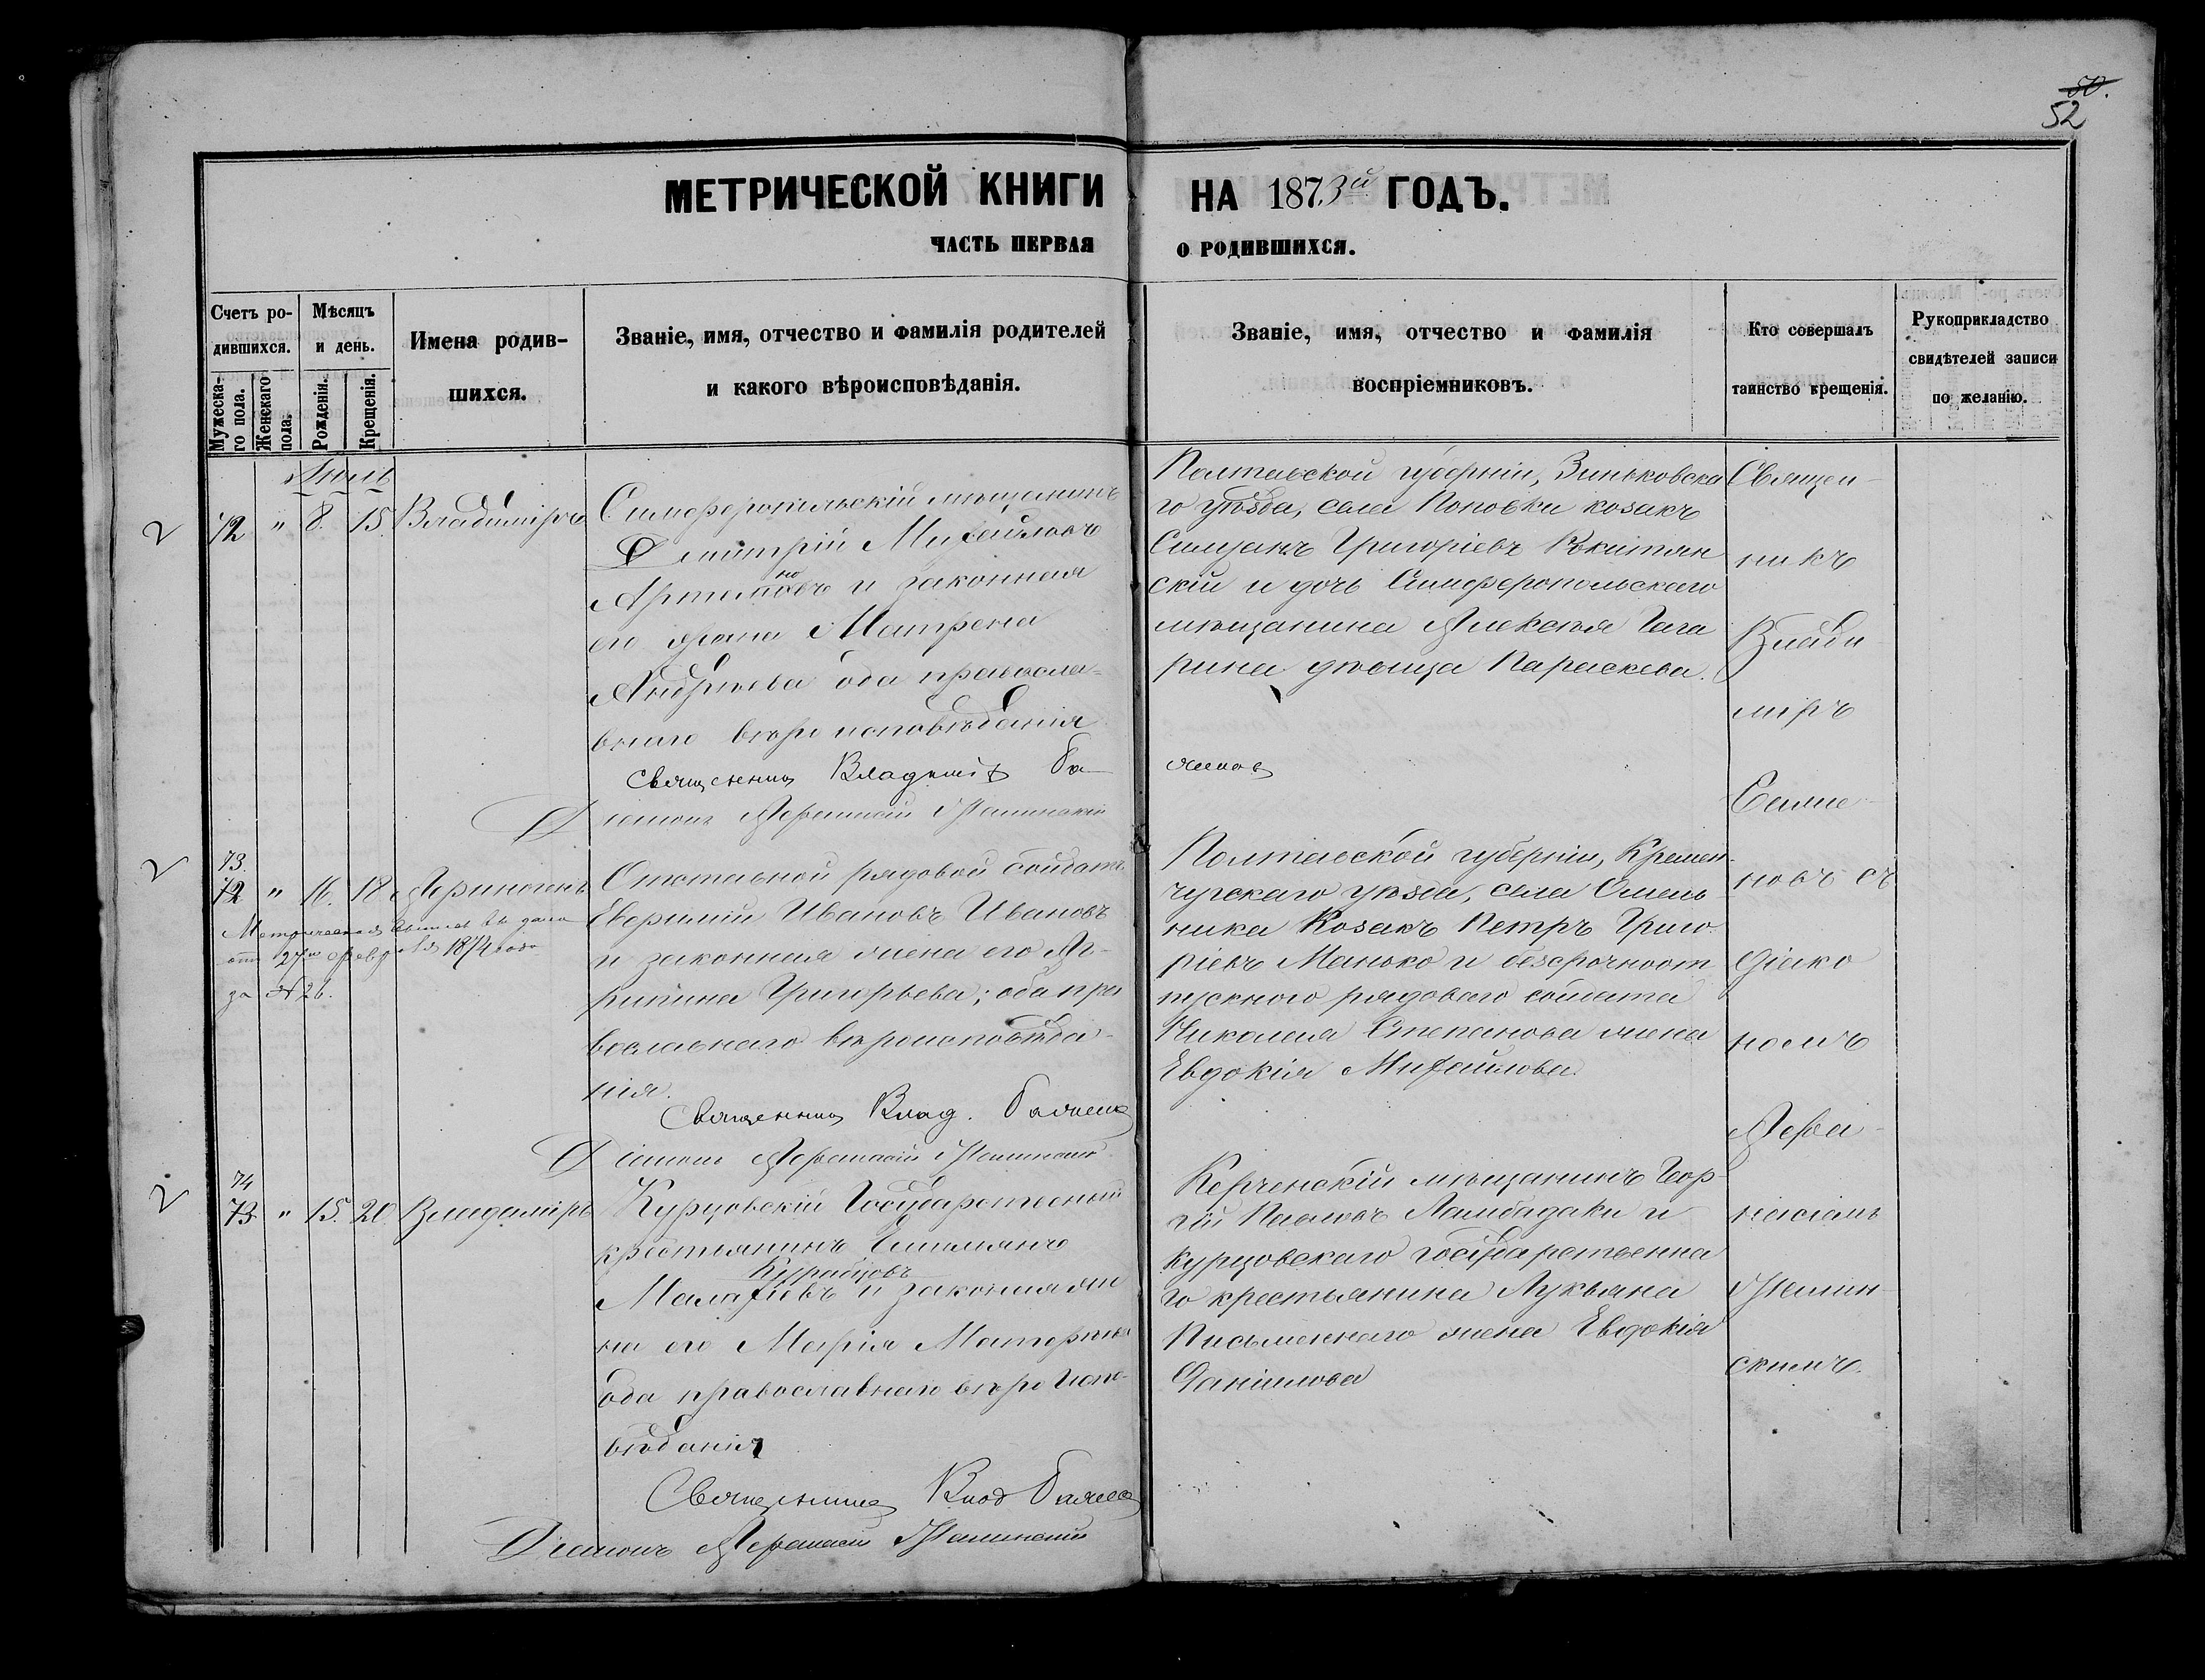 50.
52
МЕТРИЧЕСКОЙ КНИГИ НА 1873й ГОДЪ.
ЧАСТЬ ПЕРВАЯ О РОДИВШИХСЯ.
Счетъ ро-
дившихся.
Мужеска-
го пола.
Женскаго
пола.
Мѣсяцъ
и день.
Рожденія.
Крещенія.
Имена родив-
шихся.
Званіе, имя, отчество и фамилія родителей
и какого вѣроисповѣданія.
Званіе, имя, отчество и фамилія
воспріемниковъ.
Кто совершалъ
таинство крещенія.
Рукоприкладство
свидѣтелей записи
по желанію.
72 " 8. 15. Владиміръ
Симферопольскій мѣщанинъ
Дмитрій Михайловъ
но
и законная
его жена Матрена
Андрѣева оба православ-
внаго вѣроисповѣданія
Священникъ Владимір
Діаконъ Афанасій
Полтавской губерніи, Зиньковска
го уѣзда, села Поповки козакъ
Григоріевъ
скій и дочь Симферопольскаго
мѣщанина Алексѣя Гага
рина дѣвица Параскева.
73.
72 " 16. 18
Метрическая выпись
от 27го февраля 1874 года
за № 26.
Отставной рядовой солдатъ
Евфимій Ивановъ Ивановъ
и законная жена его Аг-
рипина Григорьева; оба пра
вославнаго вѣроисповѣда-
нія.
Священникъ Влад.
Діаконъ Афанасій
Полтавской губерніи, Кремен-
чугскаго уѣзда, села Омель
ника Козакъ Петръ Григо
ріевъ Манько и безсрочноот
пускного рядоваго солдата
Николая Степанова жена
Евдокія Михайлова.
74
73 " 15. 20. Владиміръ
Курцовскій Государственный
крестьянинъ
Курановъ
и законная же
на его Марія
оба православнаго вѣроиспо-
вѣданія
Священникъ Влад
Діаконъ Афанасій
Керченскій мѣщанинъ Геор
гій Павловъ Ламбадаки и
Курцовскаго Государственна
го крестьянина Лукьяна
Письменнаго жена Евдокія
Даніилова
Священ-
никъ
Влади
міръ
новъ съ
Діако
номъ
Афа-
насіемъ
скимъ.